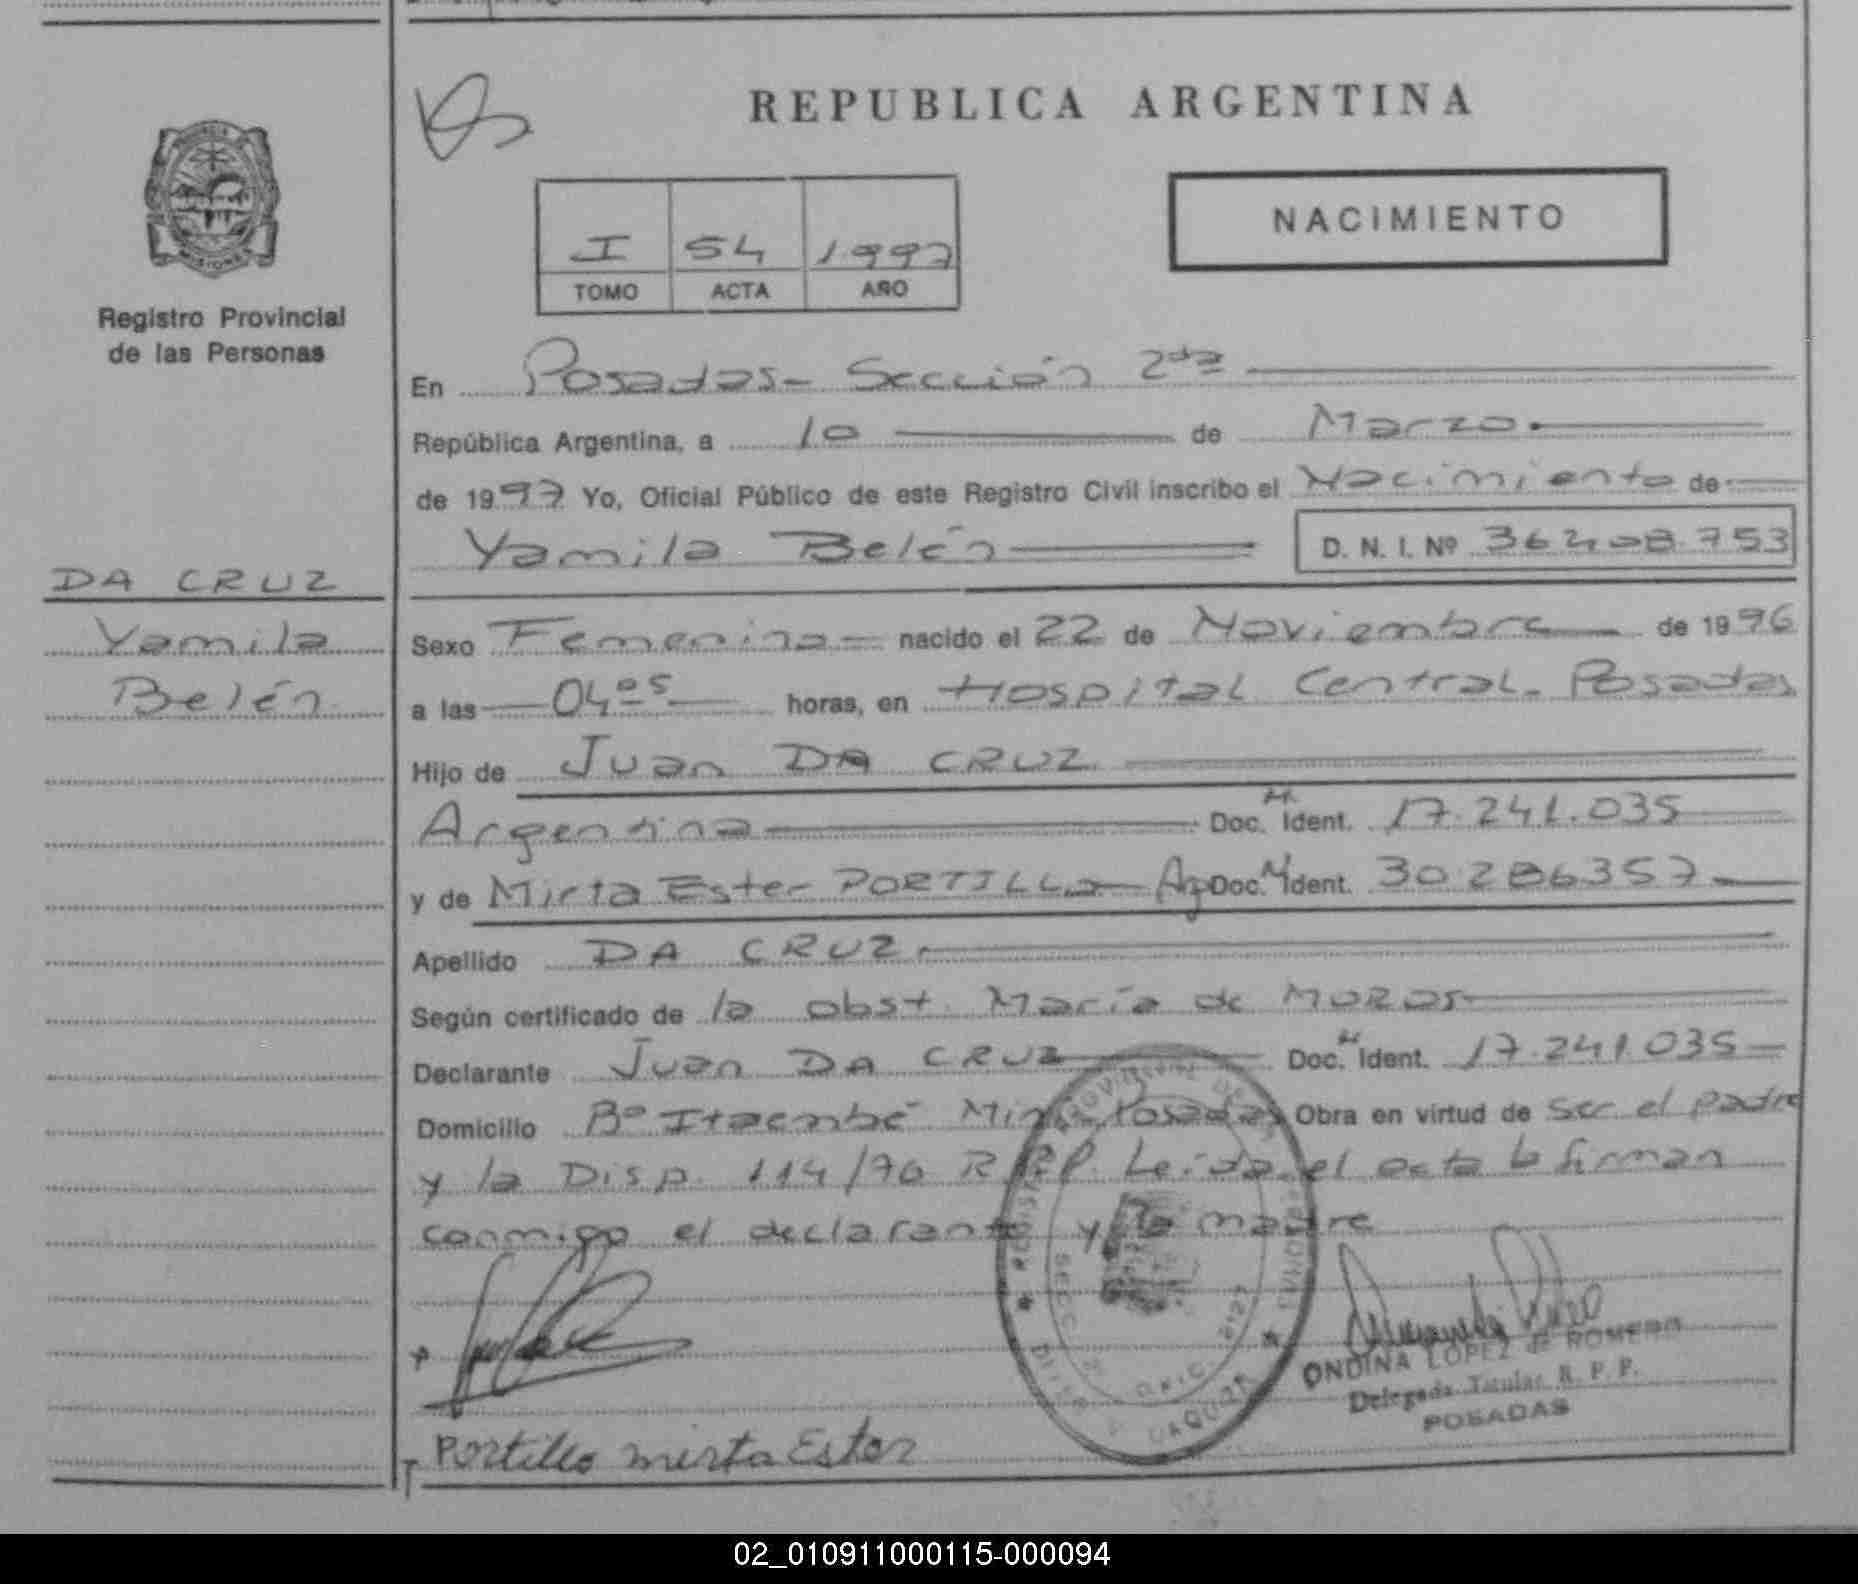 REPUBLICA ARGENTINA
NACIMIENTO
I 54 1997
TOMO ACTA AÑO
MISIONES
Registro Provincial
de las Personas
DA CRUZ
Yamila
Belén
En Posadas- Sección 2da
República Argentina, a 10 de Marzo.
de 1997 Yo, Oficial Público de este Registro Civil inscribo el Nacimiento de
Yamila Belén D. N. I. Nº 36.408.753
Sexo Femenino nacido el 22 de Noviembre de 1996
a las 04 05 horas, en Hospital Central. Posadas
Hijo de Juan DA CRUZ
Argentina Doc. M. Ident. 17.241.035
y de Mirta Ester PORTILLO Arg Doc. M Ident. 30.286357
Apellido DA CRUZ.
Según certificado de la obst. María de MOROS
Declarante Juan DA CRUZ Doc. M Ident. 17.241.035
Domicilio Bº Itaembé Miní Posadas Obra en virtud de ser el padre
y la Disp. 114/76 R.P.P. Leída el acta la firman
conmigo el declarante y la madre
Portillo mirta Ester
ONDINA LOPEZ de ROMERO
Delegada Titular R. P. P.
POSADAS
02_010911000115-000094